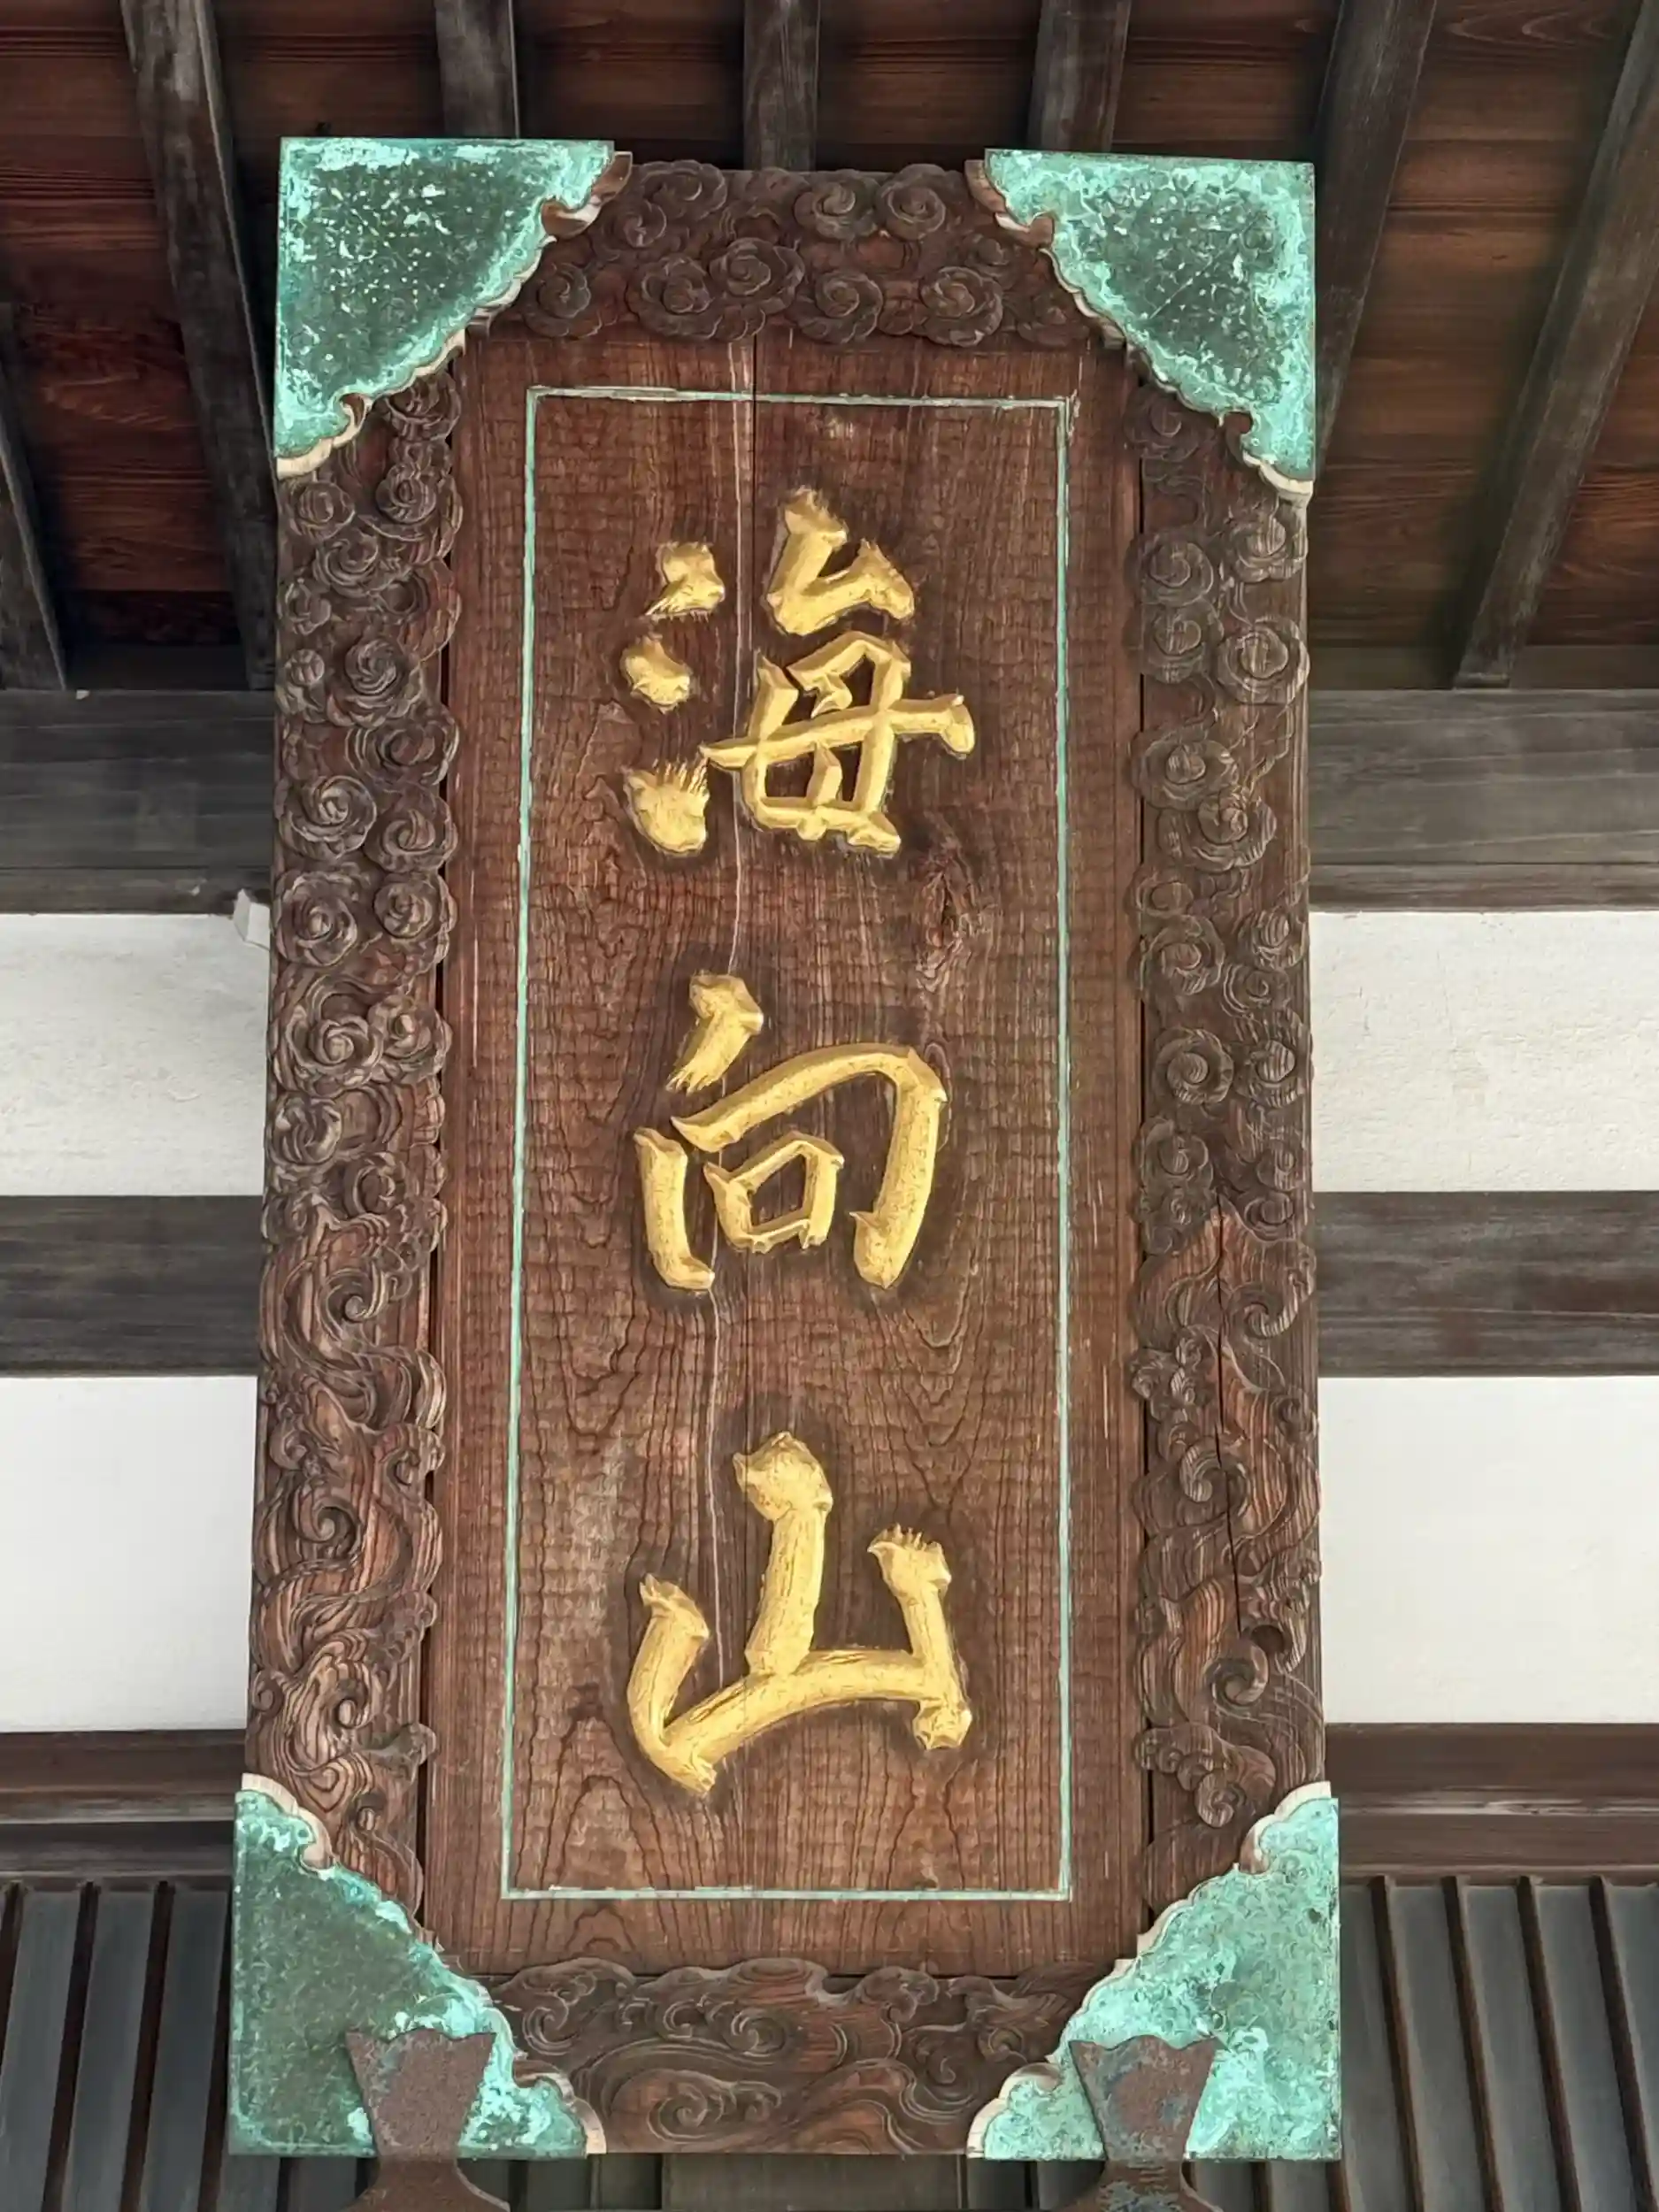 海向山